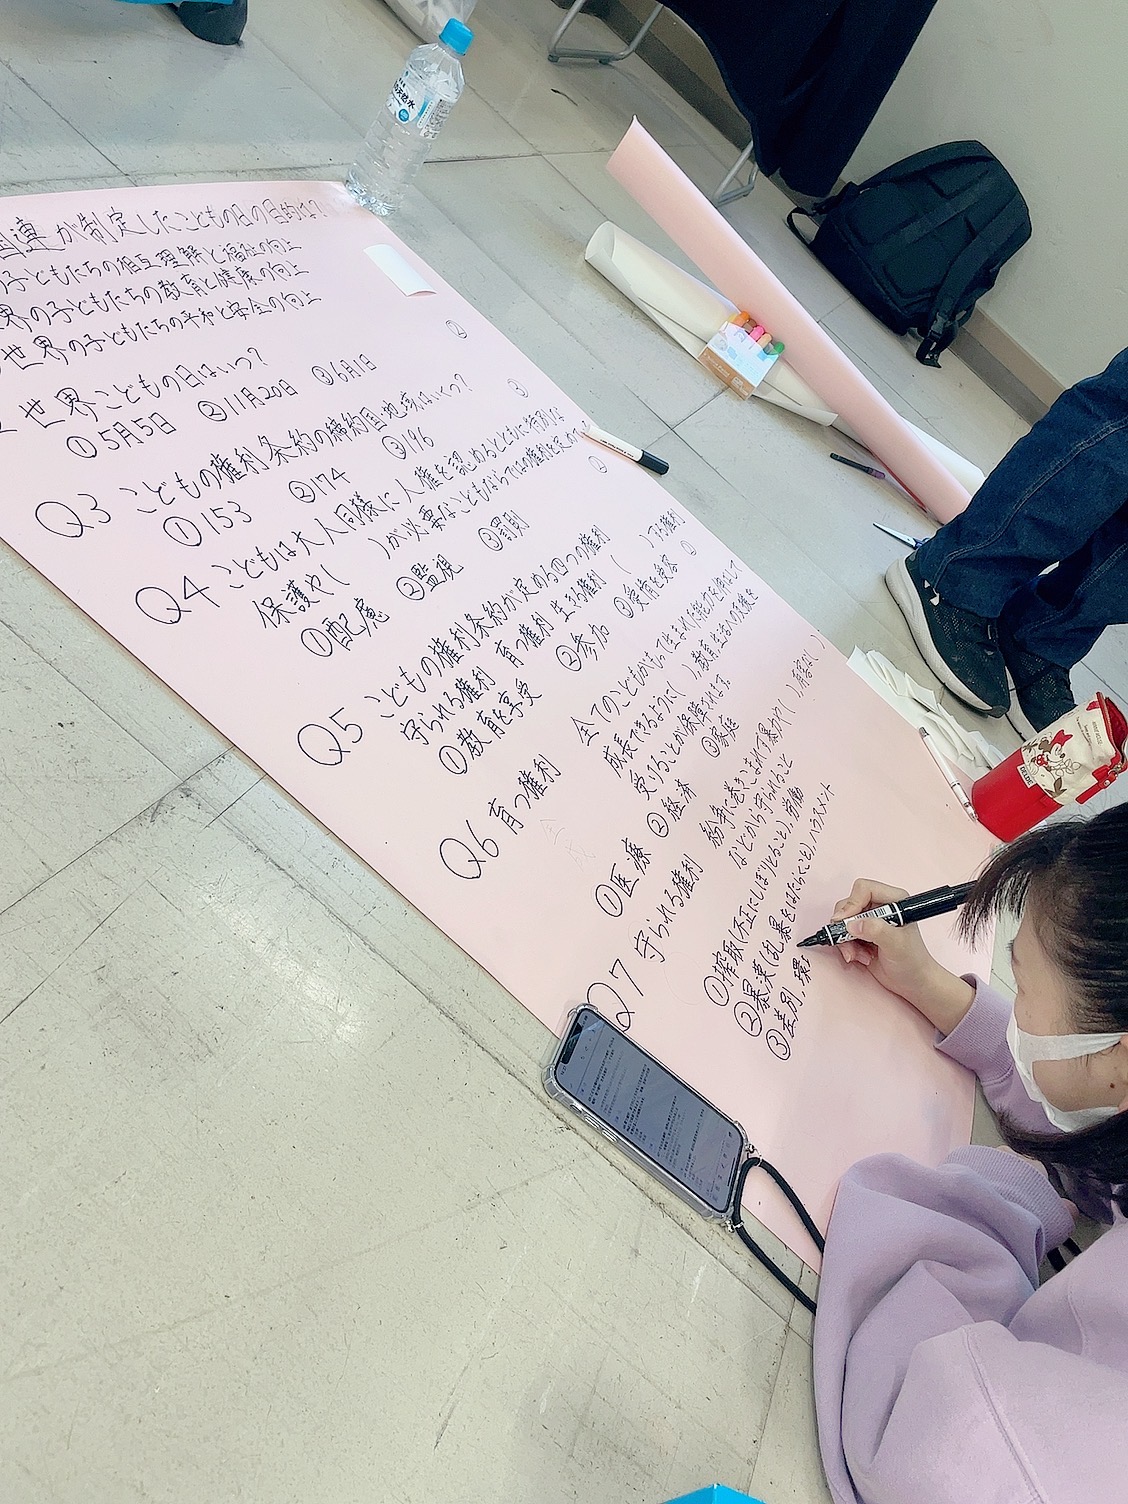 国連が制定したこどもの日の目的は?
の子どもたちの相互理解と福祉の向上
界の子どもたちの教育と健康の向上
世界の子どもたちの平和と安全の向上
②
世界こどもの日はいつ?
①5月5日 ②11月20日 ③6月1日
③
Q3 こどもの権利条約の締約国・地域はいくつ?
①153 ②174 ③196
Q4 こどもは大人同様に人権を認めるとともに特別な
保護や( )が必要なこどもならではの権利を定め
①
①配慮 ②監視 ③罰則
Q5 こどもの権利条約が定める四つの権利
守られる権利 育つ権利 生きる権利 ( )する権利
②
①教育を享受 ②参加 ③愛情を受る
Q6 育つ権利 全てのこどもがもって生まれた能力を伸ばして
成長できるように( )、教育、生活への支援を
受けることが保障される
①医療 ②経済 ③家庭
Q7 守られる権利 紛争に巻きこまれず暴力や( )、有害な( )
などから守られること
①搾取(不正にしぼりとること)、労働
②暴凍(乱暴をはたらくこと)、ハラスメント
③差別、環
天然水